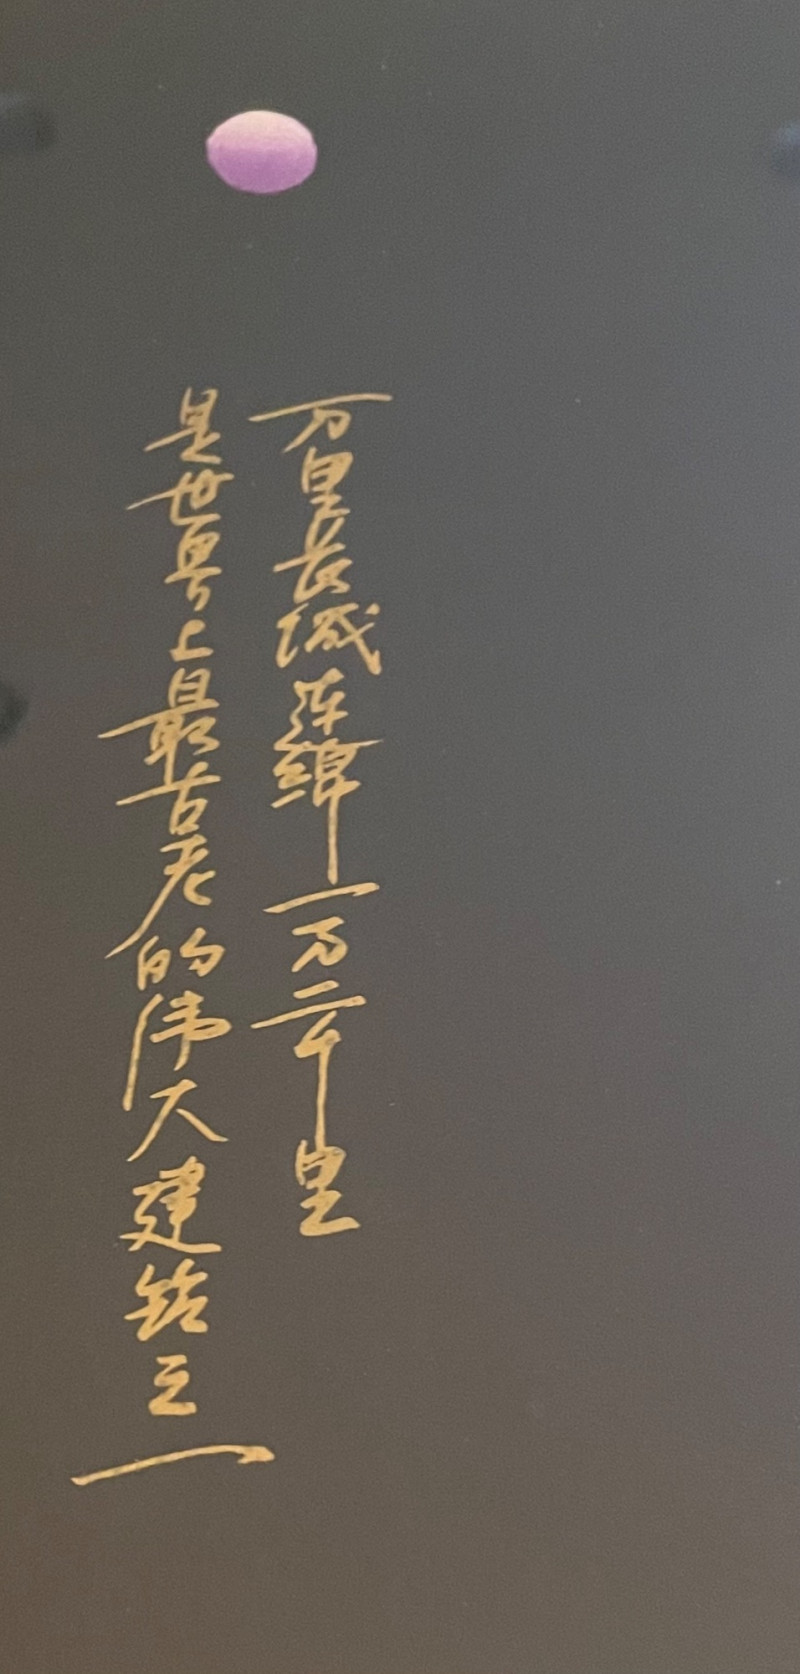 万里长城连绵一万二千里
是世界上最古老的伟大建筑之
一